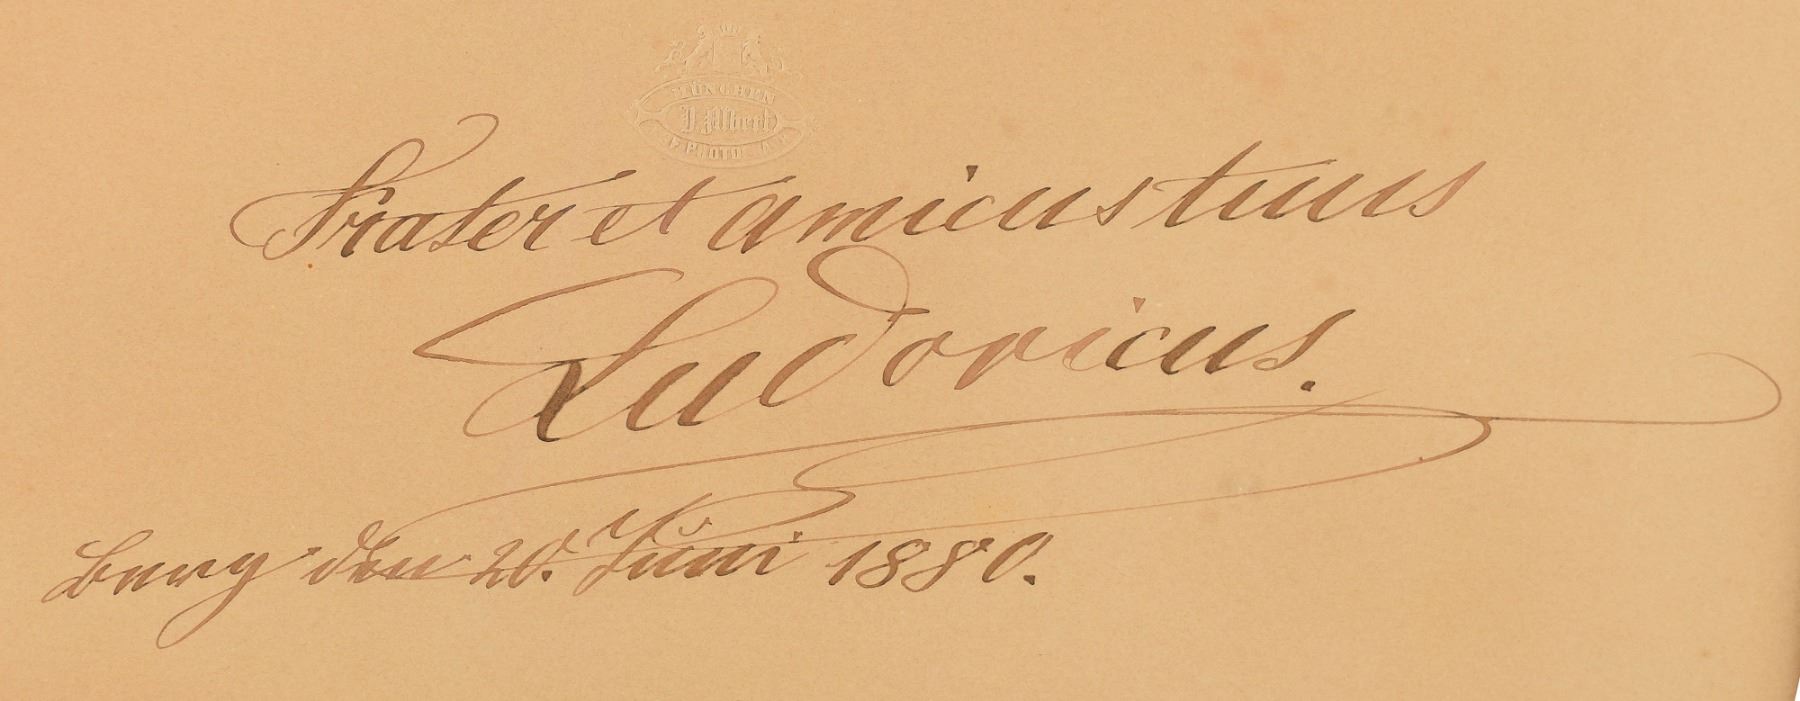 MÜNCHEN
J. Albert
Frater et amicus tuus
Ludovicus.
Berg den 20. Juni 1880.